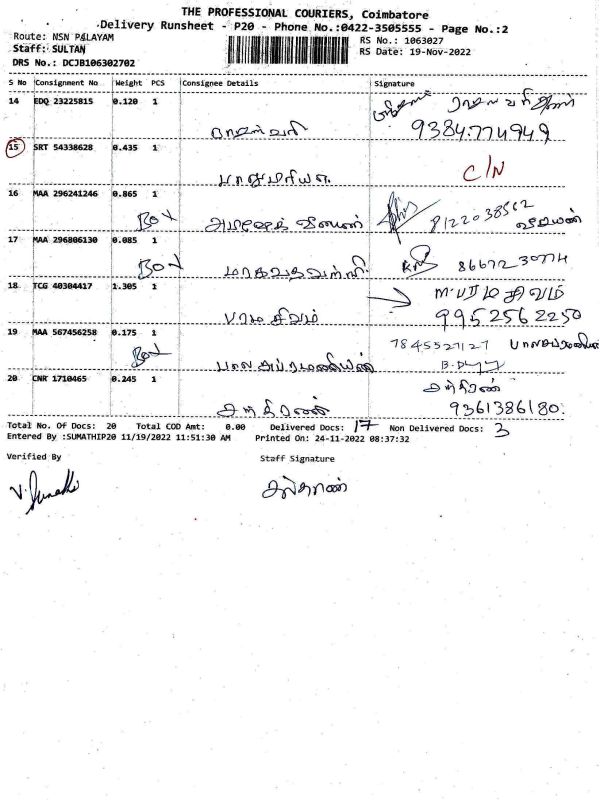 THE PROFESSIONAL COURIERS, Coimbatore
Delivery Runsheet - P20 - Phone No.:0422-3505555 - Page No.:2
Route: NSN P&LAYAM
RS No.: 1063027
Staff: SULTAN
RS Date: 19-Nov-2022
DRS No.: DCJB106302702
S No Consignment No Weight PCS Consignee Details Signature
14 EDQ 23225815 0.120 1
9384774949
15 SRT 54338628 0.435 1
C/N
16 MAA 296241246 0.865 1
Box 8122038562
17 MAA 296806130 0.085 1
Box 8667230774
18 TCG 40304417 1.305 1
பரமசிவம் 9952562250
19 MAA 567456258 0.175 1
7845527127
Box பாலசுப்ரமணியன்
20 CNR 1710465 0.245 1
சந்திரன்
சந்திரன் 9361386180
Total No. Of Docs: 20 Total COD Amt: 0.00 Delivered Docs: 17 Non Delivered Docs: 3
Entered By :SUMATHIP20 11/19/2022 11:51:30 AM Printed On: 24-11-2022 08:37:32
Verified By Staff Signature
சுல்தான்